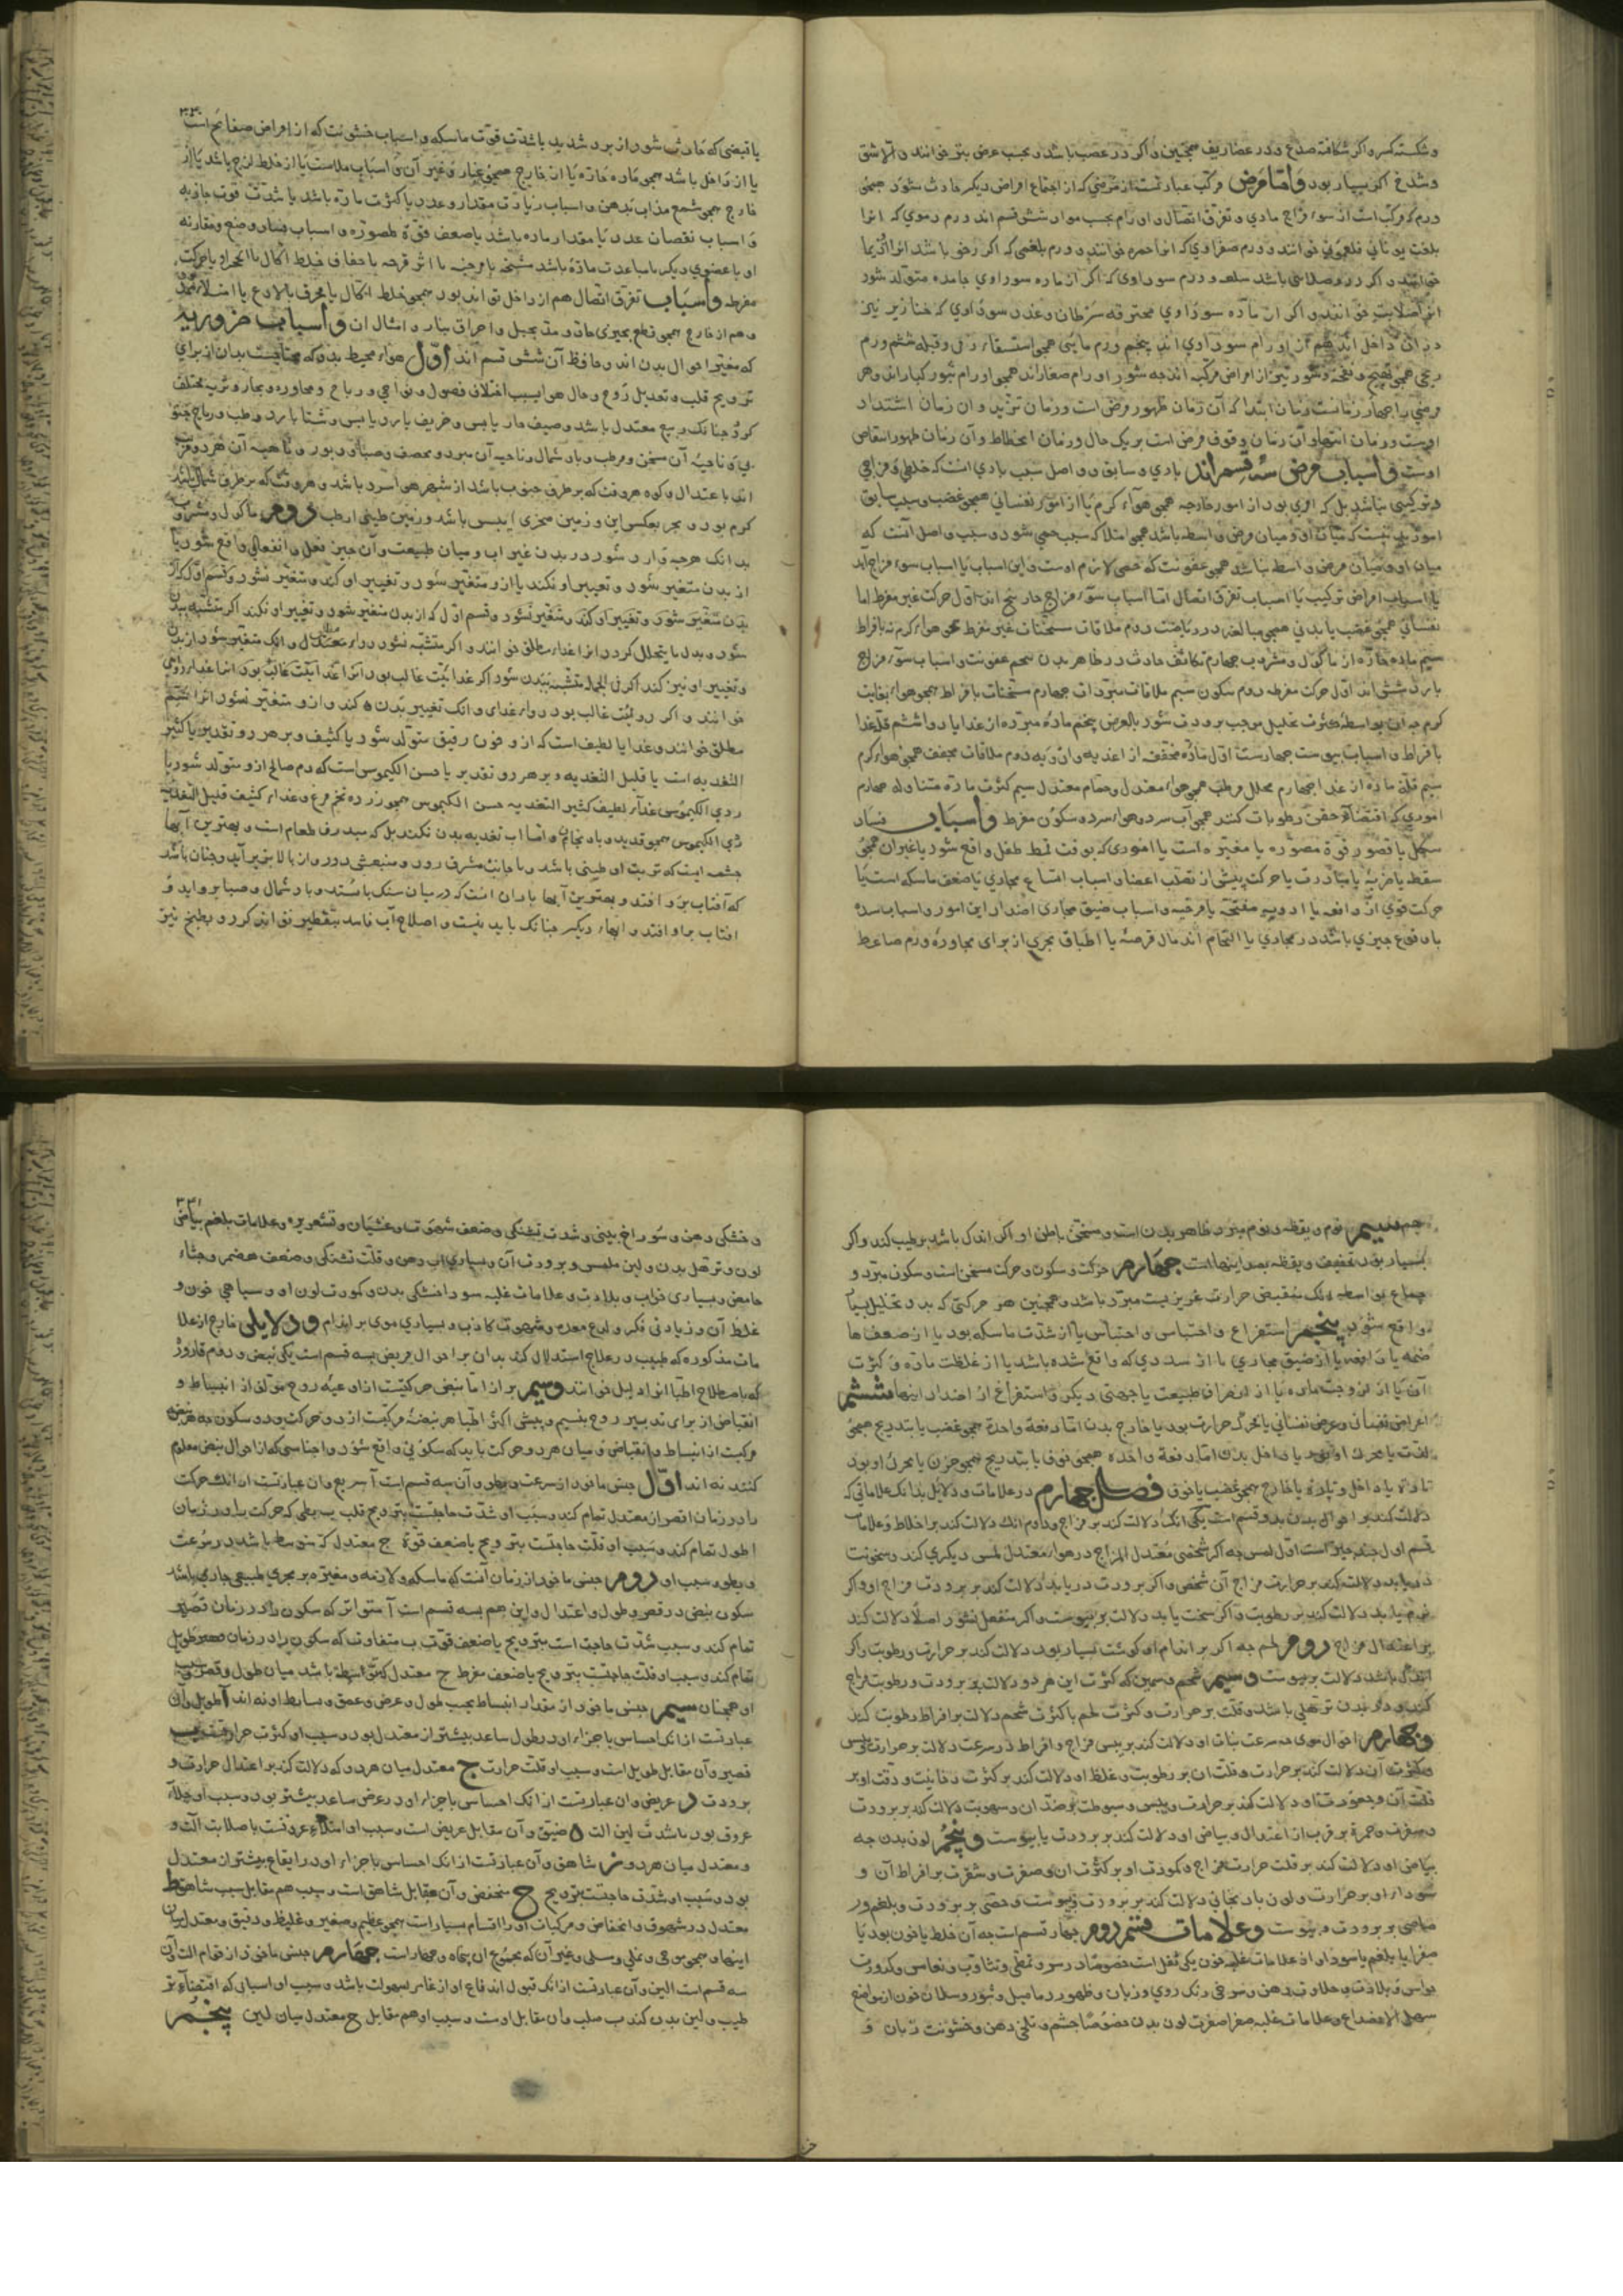 و شکسته کسر و اکر شکافته صدع و در عضاریف همچنین و اکر در عصب باشد و بحسب عرض بتر خوانند و الا شق
و شدخ اکر بسیار بود و اما مرض مرکب عبارتست از مرضی که از اجتماع امراض دیکر حادث شود همچو
ورم که مرکب است از سوء مزاج مادی و تفرق اتصال و اورام بحسب مواد شش قسم اند ورم دموی که انرا
بلغت یونانی فلغمونی خوانند و ورم صفراوی که انرا حمره خوانند و ورم بلغمی که اکر رخو باشد انرا اوذیما
خوانند و اکر درو صلابتی باشد سلعه و ورم سوداوی که اکر از ماده سوداوی جامده متولد شود
در ان داخل اند هم از اورام سوداوی اند پنجم ورم مائی همچو استسقاء زقی و قیله ششم ورم
ریحی همچو تهیج و نفخه و بثور نیز از امراض مرکبه اند چه بثور اورام صغار اند همچو اورام بثور کبار اند و هر
مرضی را چهار زمانست زمان ابتدا که آن زمان ظهور مرض است و زمان تزید و ان زمان اشتداد
اوست و زمان انتها و آن زمان وقوف مرض است بر یک حال و زمان انحطاط و آن زمان ظهور انتقاص
اوست و اسباب مرض سه قسم اند بادی و سابق و واصل سبب بادی انست که خلطی و مزاجی
و ترکیبی نباشد بل که امری بود از امور خارجه همچو هواء کرم یا از امور نفسانی همچو غضب و سبب سابق
امور بدنیست که میان او و میان مرض واسطه باشد همچو امتلا که سبب حمی شود و سبب واصل آنست که
میان او و میان مرض واسطه نباشد همچو عفونت که حمی لازم اوست و این اسباب یا اسباب سوء مزاج اند
یا اسباب امراض ترکیب یا اسباب تفرق اتصال اما اسباب سوء مزاج حار پنج اند اول حرکت غیر مفرط اما
نفسانی همچو غضب یا بدنی همچو مبالغه در ریاضت دوم ملاقات مسخنات غیر مفرط همچو هواء کرم نه بافراط
سیم ماده حاره از ماکول و مشروب چهارم تکاثف حادث در ظاهر بدن پنجم عفونت و اسباب سوء مزاج
بارد شش اند اول حرکت مفرطه دوم سکون سیم ملاقات مبردات چهارم مسخنات بافراط همچو هواء بغایت
کرم چه ان بواسطه کثرت تحلیل موجب برودت شود بالعرض پنجم ماده مبرده از غذا یا دوا ششم قلت غذا
بافراط و اسباب یبوست چهارست اول ماده مجففه از اغذیه و ادویه دوم ملاقات مجفف همچو هواء کرم
سیم قلت ماده از غذا چهارم محلل مرطب همچو هواء معتدل و حمام معتدل سیم کثرت ماده متناوله چهارم
اموری که اقتضاء حقن رطوبات کنند همچو آب سرد و هواء سرد و سکون مفرط و اسباب فساد
شکل یا قصور قوة مصوره یا مغیره است یا اموری که بوقت قمط طفل واقع شود یا غیر ان همچو
سقطه یا ضربه یا مبادرت یا حرکت پیش از تصلب اعضا و اسباب اتساع مجاری یا ضعف ماسکه است یا
حرکت قوی از دافعه یا ادویه مفتحه یا مرخیه و اسباب ضیق مجاری اضداد این امور و اسباب سده
یا وقوع چیزی باشد در مجاری یا التحام اندمال قرحه یا اطباق مجری از برای مجاوره ورم ضاغط
۳۳۰
یا قبضی که حادث شود از برد شدید یا شدت قوت ماسکه و اسباب خشونت که از امراض صفایح است
یا از داخل باشد همچو ماده حاده یا از خارج همچو غبار و غیر آن و اسباب ملاست یا از خلط لزج باشد یا از
خارج همچو شمع مذاب بدهن و اسباب زیادت مقدار و عدد یا کثرت ماده باشد یا شدت قوت جاذبه
و اسباب نقصان عدد یا مقدار ماده باشد یا ضعف قوة مصوره و اسباب فساد وضع و مقارنه
او با عضوی دیکر یا مباعدت ماده باشد مشنجه یا مرخیه یا اثر قرحه یا جفاف خلط اکال یا انحراد یا حرکت
مفرطه و اسباب تفرق اتصال هم از داخل تواند بود همچو خلط اکال یا محرق یا لاذع یا امتلاء ممدد
و هم از خارج همچو قطع بچیزی حاد و مد بحبل و احراق بنار و امثال ان و اسباب ضروریه
که مغیر احوال بدن اند و حافظ آن شش قسم اند اول هواء محیط ببدن که محتاجست بدان از برای
ترویح قلب و تعدیل روح و حال هوا بسبب اختلاف فصول و نواحی و ریاح و مجاوره و بحار و ترب مختلف
کردد چنانک ربیع معتدل باشد و صیف حار یابس و خریف بارد یابس و شتا بارد رطب و ریاح جنو
بی و ناحیه آن مسخن و مرطب و باد شمال و ناحیه آن مبرد و مجفف و صبا و دبور و ناحیه آن هر دو قریب
اند باعتدال و کوه هر وقت که بر طرف جنوب باشد از شهر هوا سرد باشد و هر وقت که بر طرف شمال باشد
کرم بود و بحر بعکس این و زمین صخری ایبس باشد و زمین طینی ارطب دوم ماکول و مشروب
بدانک هرچه وارد شود در بدن غیر اب و میان طبیعت و آن چیز فعل و انفعالی واقع شود یا
از بدن متغیر شود و تغییر او نکند یا از او متغیر شود و تغییر او کند و متغیر نشود و قسم اول که از
بدن متغیر شود و تغییر او کند و متغیر نشود و قسم اول که از بدن متغیر شود و تغییر او نکند اکر متشبه ببدن
شود و بدل ما یتحلل کردد انرا غذاء مطلق خوانند و اکر متشبه نشود دواء معتدل و انک متغیر شود از بدن
و تغییر او نیز کند اکر فی الجمله متشبه ببدن شود اکر غذائیت غالب بود انرا غذا
خوانند و اکر دوائیت غالب بود دواء غذای و انک تغییر بدن کند و ازو متغیر نشود انرا سم
مطلق خوانند و غذا یا لطیف است که ازو خون رقیق متولد شود یا کثیف و بر هر دو تقدیر یا کثیر
التغذیه است یا قلیل التغذیه و بر هر دو تقدیر یا حسن الکیموس است که دم صالح ازو متولد شود یا
ردی الکیموس غذاء لطیف کثیر التغذیه حسن الکیموس همچو زرده تخم مرغ و غذاء کثیف قلیل التغذیه
ردی الکیموس همچو قدید و بادنجان و اما اب تغذیه بدن نکند بل که مبدرق طعام است و بهترین آبها
چشمه ایست که تربت او طینی باشد و با جانب مشرق رود و منبعش دور و از بالا بزیر آید و چنان باشد
که آفتاب برو افتد و بهترین آبها باران انست که در میان سنک باستد و باد شمال و صبا برو اید و
افتاب براو افتد و ابهاء دیکر چنانک باید نیست و اصلاح آب فاسد بتقطیر توان کرد و بطبخ نیز
سیم نوم و یقظه و نوم مبرد ظاهر بدن است و مسخن باطن او اکر اندک باشد ترطیب کند و اکر
بسیار بود تجفیف و یقظه بضد اینهاست چهارم حرکت و سکون و حرکت مسخن است و سکون مبرد و
جماع بواسطه انک منقص حرارت غریزیست مبرد باشد و همچنین هر حرکتی که بدو تحلیل بسیار
واقع شود پنجم استفراغ و احتباس و احتباس یا از شدت ماسکه بود یا از ضعف ها
ضمه یا دافعه یا از ضیق مجاری یا از سددی که واقع شده باشد یا از غلظت ماده و کثرت
آن یا از لزوجت ماده یا از انصراف طبیعت با جهتی دیکر و استفراغ از اضداد اینها ششم
اعراض نفسانی و عرض نفسانی یا محرک حرارت بود با خارج بدن اما دفعة واحدة همچو غضب یا بتدریج همچو
لذت یا محرک او بود با داخل بدن اما دفعة واحدة همچو خوف یا بتدریج همچو حزن یا محرک او بود
تارة با داخل و تارة با خارج همچو غضب با خوف فصل چهارم در علامات و دلایل بدانک علاماتی که
دلالت کند بر احوال بدن بدو قسم است یکی انک دلالت کند بر مزاج و دوم انک دلالت کند بر اخلاط و علامات
قسم اول چند چیز است اول لمس چه اکر شخصی معتدل المزاج در هواء معتدل لمس دیکری کند و سخونت
دریابد دلالت کند بر حرارت مزاج آن شخص و اکر برودت دریابد دلالت کند بر برودت مزاج او و اکر
نرم یابد دلالت کند بر رطوبت و اکر سخت یابد دلالت بر یبوست و اکر منفعل نشود اصلا دلالت کند
بر اعتدال مزاج دوم لحم چه اکر بر اندام او کوشت بسیار بود دلالت کند بر حرارت و رطوبت و اکر
اندک باشد دلالت بر یبوست و سیم شحم و سمین که کثرت این هر دو دلالت بر برودت و رطوبت مزاج
کند و در بدن ترهلی باشد و قلت بر حرارت و کثرت لحم با کثرت شحم دلالت بر افراط رطوبت کند
و چهارم احوال موی چه سرعت نبات او دلالت کند بر یبس مزاج و افراط در سرعت دلالت بر حرارت و یبس
و کثرت آن دلالت کند بر حرارت و قلت ان بر رطوبت و غلظ او دلالت کند بر کثرت دخانیت و دقت او بر
قلت آن و جعودت او دلالت کند بر حرارت و یبس و سبوطت بر ضد ان و سهوبت دلالت کند بر برودت
و صفرت و حمرة بر قرب از اعتدال و بیاض او دلالت کند بر برودت یا یبوست و پنجم لون بدن چه
بیاض او دلالت کند بر قلت حرارت مزاج و کمودت او بر کثرت ان و صفرت و شقرت بر افراط آن و
سواد او بر حرارت و لون بادنجانی دلالت کند بر برودت و یبوست و جصی بر برودت و بلغم و ر
صاصی بر برودت و یبوست و علامات قسم دوم چهار قسم است چه آن خلط یا خون بود یا
صفرا یا بلغم یا سودا و از علامات غلبه خون یکی ثقل است خصوصا در سر و تمطی و تثاوب و نعاس و کدورت
حواس و بلادت و حلاوت دهن و سرخی رنک روی و زبان و ظهور دمامیل و بثور و سیلان خون از مواضع
سهل الانصداع و علامات غلبه صفرا صفرت لون بدن خصوصا چشم و تلخی دهن و خشونت زبان و
۳۳۱
و خشکی دهن و سوراخ بینی و شدت تشنکی و ضعف شهوت و غشیان و قشعریره و علامات بلغم بیاض
لون و ترهل بدن و لین ملمس و برودت آن و بسیاری اب دهن و قلت تشنکی و ضعف هضم و جشاء
حامض و بسیاری خواب و بلادت و علامات غلبه سودا خشکی بدن و کمودت لون او و سیاهی خون و
غلظ آن و زیادتی فکر و لدع معده و شهوت کاذب و بسیاری موی بر اندام و دلایلی خارج از علا
مات مذکوره که طبیب در علاج استدلال کند بدان بر احوال مریض سه قسم است یکی نبض و دوم قاروره
که باصطلاح اطبا انرا دلیل خوانند و سیم براز اما نبض حرکتیست از اوعیه روح مؤلف از انبساط و
انقباض از برای تدبیر روح بنسیم و پیش اکثر اطبا هر نبضة مرکبست از دو حرکت و دو سکون چه هر نبض
مرکبست از انبساط و انقباض و میان هر دو حرکت باید که سکونی واقع شود و اجناسی که از احوال نبض معلوم
کنند نه اند اول جنس ماخوذ از سرعت و بطو و آن سه قسم است آ سریع و ان عبارتست از انک حرکت
را در زمان اقصر از معتدل تمام کند و سبب او شدت حاجتست بترویح قلب ب بطی که حرکت را در زمان
اطول تمام کند و سبب او قلت حاجتست بترویح یا ضعف قوة ج معتدل که متوسط باشد در سرعت
و بطو و سبب او دوم جنس ماخوذ از زمان
سکون نبض در قصر و طول و اعتدال و این هم سه قسم است آ متواتر که سکون را در زمان قصیر
تمام کند و سبب شدت حاجت است بترویح یا ضعف قوت ب متفاوت که سکون را در زمان طویل
تمام کند و سبب او قلت حاجتست بترویح یا ضعف مفرط ج معتدل که متوسط باشد میان طول و قصر و سبب
او همچنان سیم جنس ماخوذ از مقدار انبساط بحسب طول و عرض و عمق و بسایط او نه اند آ طویل و آن
عبارتست از انک احساس باجزاء او در طول ساعد بیشتر از معتدل بود و سبب او کثرت حرارتست ب
قصیر و آن مقابل طویل است و سبب او قلت حرارت ج معتدل میان هر دو که دلالت کند بر اعتدال حرارت و
برودت د عریض و ان عبارتست از انک احساس باجزاء او در عرض ساعد بیشتر بود و سبب او خلاء
عروق بود یا شدت لین الت ه ضیق و آن مقابل عریض است و سبب او امتلاء عروقست یا صلابت آلت و
و معتدل میان هر دو ز شاهق و آن عبارتست از انک احساس باجزاء او در ارتفاع بیشتر از معتدل
بود و سبب او شدت حاجتست بترویح ح منخفض و آن مقابل شاهق است و سبب هم مقابل سبب شاهق ط
معتدل در شهوق و انخفاض و مرکبات او را اقسام بسیار است همچو عظیم و صغیر و غلیظ و دقیق و معتدل میان
اینها و همچو موجی و نملی و مسلی و غیر آن که مجموع ان پنجاه و چهار است چهارم جنس ماخوذ از قوام الت آن
سه قسم است الین و آن عبارتست از انک قبول اندفاع او از غامز بسهولت باشد و سبب او اسبابی که اقتضاء تر
طیب و لین بدن کند ب صلب و ان مقابل اوست و سبب او هم مقابل ج معتدل میان لین پنجم